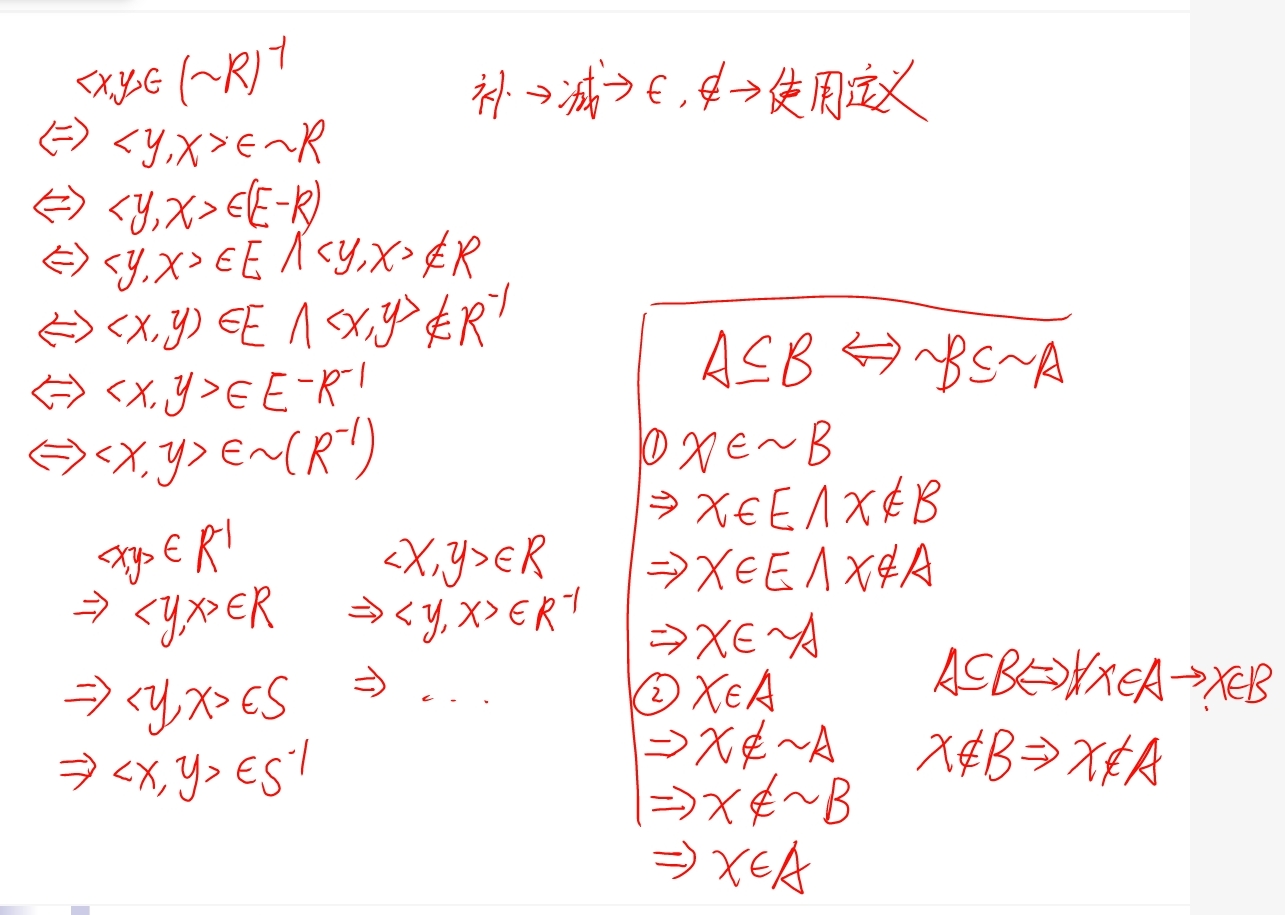 <x,y>∈(~R)⁻¹
⇔ <y,x>∈~R
⇔ <y,x>∈(E-R)
⇔ <y,x>∈E∧<y,x>∉R
⇔ <x,y)∈E∧<x,y>∉R⁻¹
⇔ <x,y>∈E-R⁻¹
⇔ <x,y>∈~(R⁻¹)
补→减→∈,∉→使用定义
<x,y>∈R⁻¹
⇒ <y,x>∈R
⇒ <y,x>∈S
⇒ <x,y>∈S⁻¹
<x,y>∈R
⇒ <y,x>∈R⁻¹
⇒ ....
A⊆B ⇔ ~B⊆~A
① x∈~B
⇒ x∈E∧x∉B
⇒ x∈E∧x∉A
⇒ x∈~A
② x∈A
⇒ x∉~A
⇒ x∉~B
⇒ x∈A
A⊂B⇔∀x∈A→x∈B
x∉B⇒x∉A